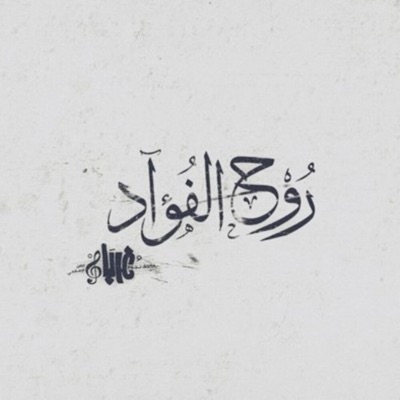 رُوْح الفُؤآد